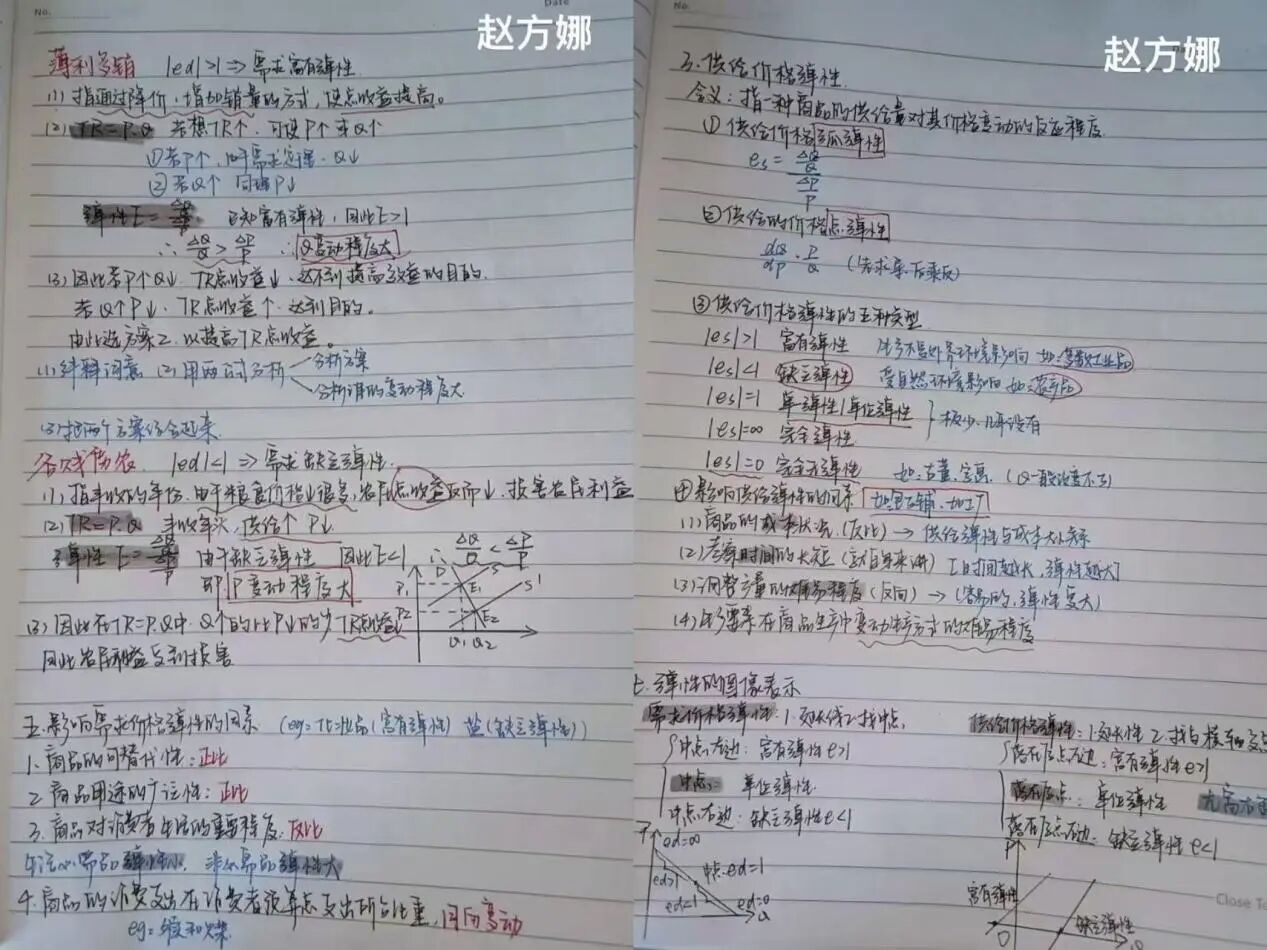 No.
Date
赵方娜
薄利多销 |ed|>1 => 需求富有弹性
(1) 指通过降价,增加销量的方式,使总收益提高。
(2) TR=P.Q 若想TR↑,可使P↑或Q↑
①若P↑,由于需求定理,Q↓
②若Q↑ 同理P↓
弹性E= 已知富有弹性,因此E>1
∴ ΔQ/Q > ΔP/P ∴ Q变动程度大
(3) 因此若P↑Q↓,TR总收益↓,达不到提高收益的目的。
若Q↑P↓,TR总收益↑,达到目的。
由此选方案2,以提高TR总收益。
(1) 解释词意 (2) 用两式分析 分析方案
分析谁的变动程度大
(3) 把两个方案结合起来
谷贱伤农 |ed|<1 => 需求缺乏弹性
(1) 指丰收的年份,由于粮食价格↓很多,农民总收益反而↓,损害农民利益
(2) TR=P.Q 丰收年次,供给↑ P↓
弹性E= ΔQ/Q / ΔP/P 由于缺乏弹性 因此E<1 ∴ ΔQ/Q < ΔP/P
即 P变动程度大
(3) 因此在TR=P.Q中,Q↑的比P↓的少 TR总收益↓
因此农民利益受到损害
D S S'
P1 E1
P2 E2
Q1 Q2
五.影响需求价格弹性的因素 (eg=化妆品(富有弹性) 盐(缺乏弹性))
1.商品的可替代性:正比
2.商品用途的广泛性:正比
3.商品对消费者生活的重要程度:反比
必需品弹性小,非必需品弹性大
4.商品的消费支出在消费者预算总支出所占比重,同向变动
赵方娜
3.供给价格弹性
含义:指一种商品的供给量对其价格变动的反应程度
① 供给价格弧弹性
es= ΔQ/Q / ΔP/P
②供给的价格点弹性
dQ/dP · P/Q (先求导后乘反)
③供给价格弹性的五种类型
|es|>1 富有弹性 生产不受外界环境影响 如:多数工业品
|es|<1 缺乏弹性 受自然环境影响 如:农产品
|es|=1 单一弹性/单位弹性 } 极少,几乎没有
|es|=∞ 完全弹性
|es|=0 完全无弹性 如:古董、字画 (Q一般改变不了)
④影响供给弹性的因素
(1)商品的成本状况 (反比) → 供给弹性与成本大小关系
(2)考察时间的长短 时间越长,弹性越大
(3)调整产量的难易程度 (反向) → (容易的,弹性变大)
(4)生产要素在商品生产中变动生产方式的难易程度
七.弹性的图像表示
需求价格弹性:1.延长线2.找中点
中点左边:富有弹性e>1
中点: 单位弹性
中点右边:缺乏弹性e<1
P
ed=∞
ed>1 中点ed=1
ed<1 ed=0
Q
供给价格弹性:1.延长线 2.找与横轴交点
落在原点左边:富有弹性e>1
落在原点:单位弹性
落在原点右边:缺乏弹性e<1
P
富有弹性
缺乏弹性
O
Close To